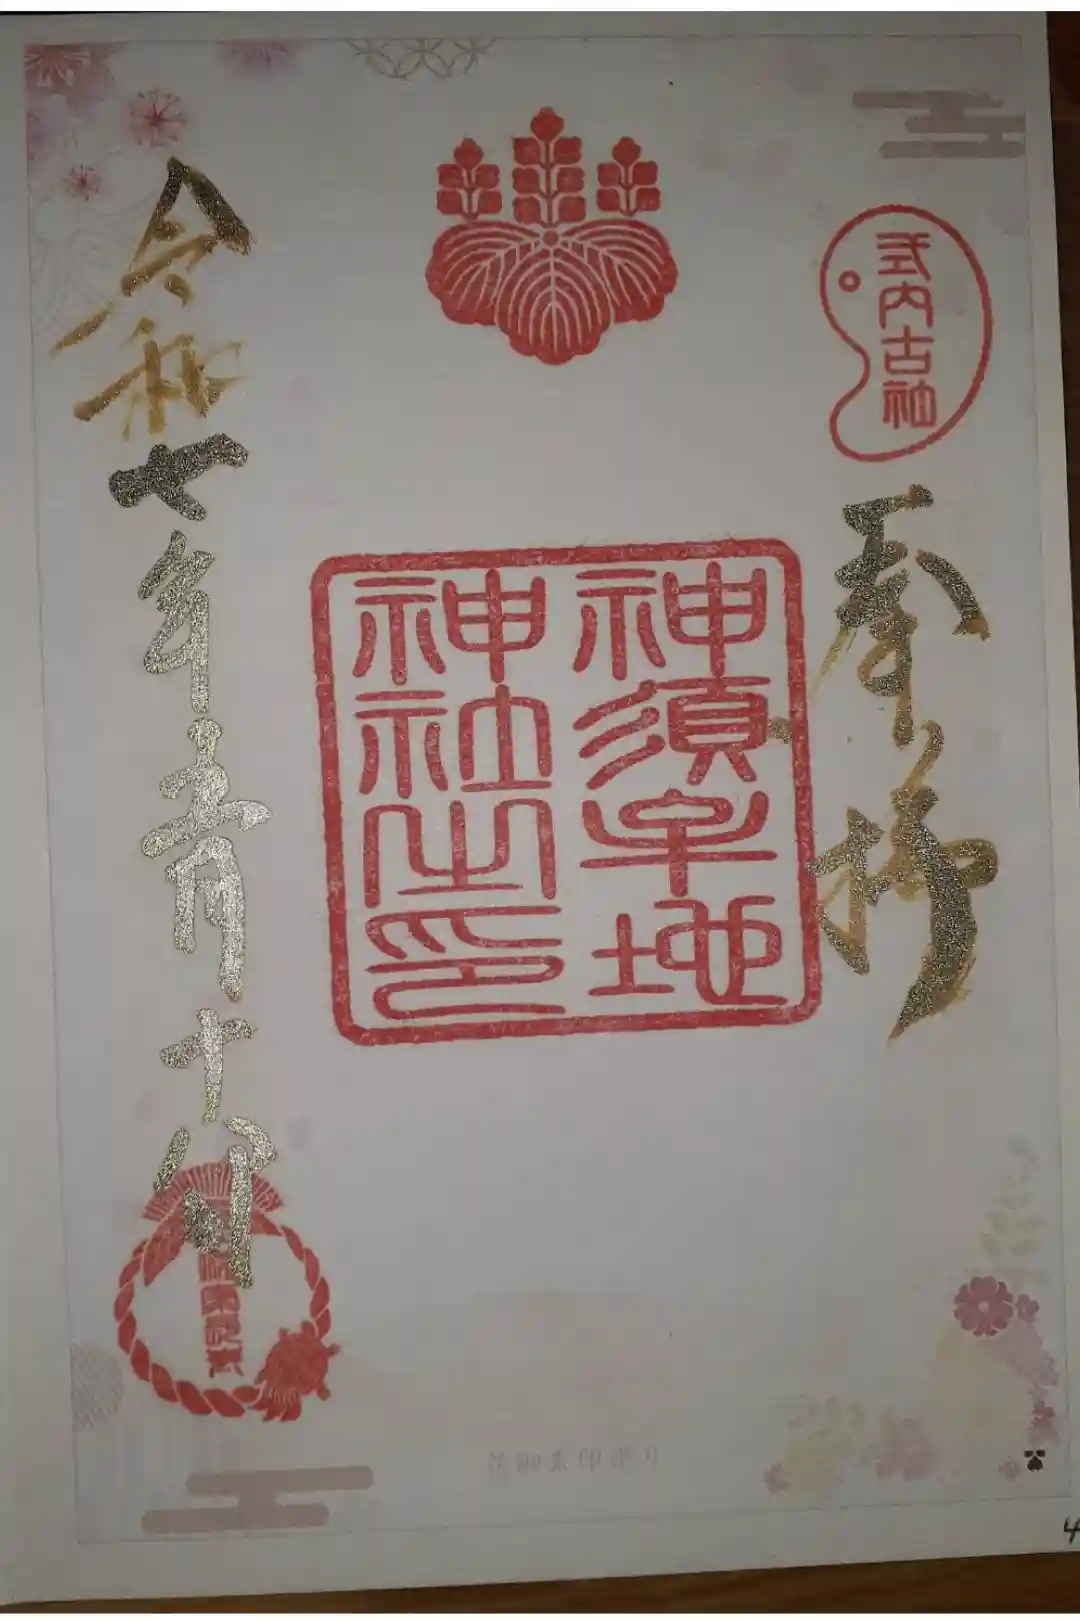 式内古社
奉拝
神須牟地
神社之印
令和七年 月十八日
4